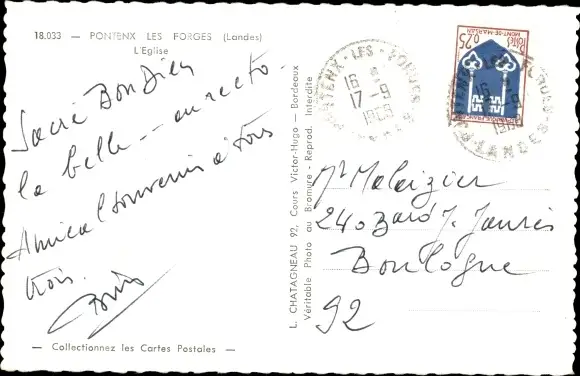 18.033 — PONTENX LES FORGES (Landes)
L'Eglise
Sacré Bon Dieu
la belle -- au recto -
Amical souvenir à tous
trois.
— Collectionnez les Cartes Postales —
L. CHATAGNEAU 92, Cours Victor-Hugo — Bordeaux
Véritable Photo au Bromure - Reprod. Interdite
PONTENX-LES-FORGES
16 H
17 - 9
1966
LANDES
0,25
POSTES
MONT-DE-MARSAN
REPUBLIQUE FRANÇAISE
PONTENX-LES-FORGES
16 H
17 - 9
1966
LANDES
Mr Malézier
240 Bard J. Jaurès
Boulogne
92